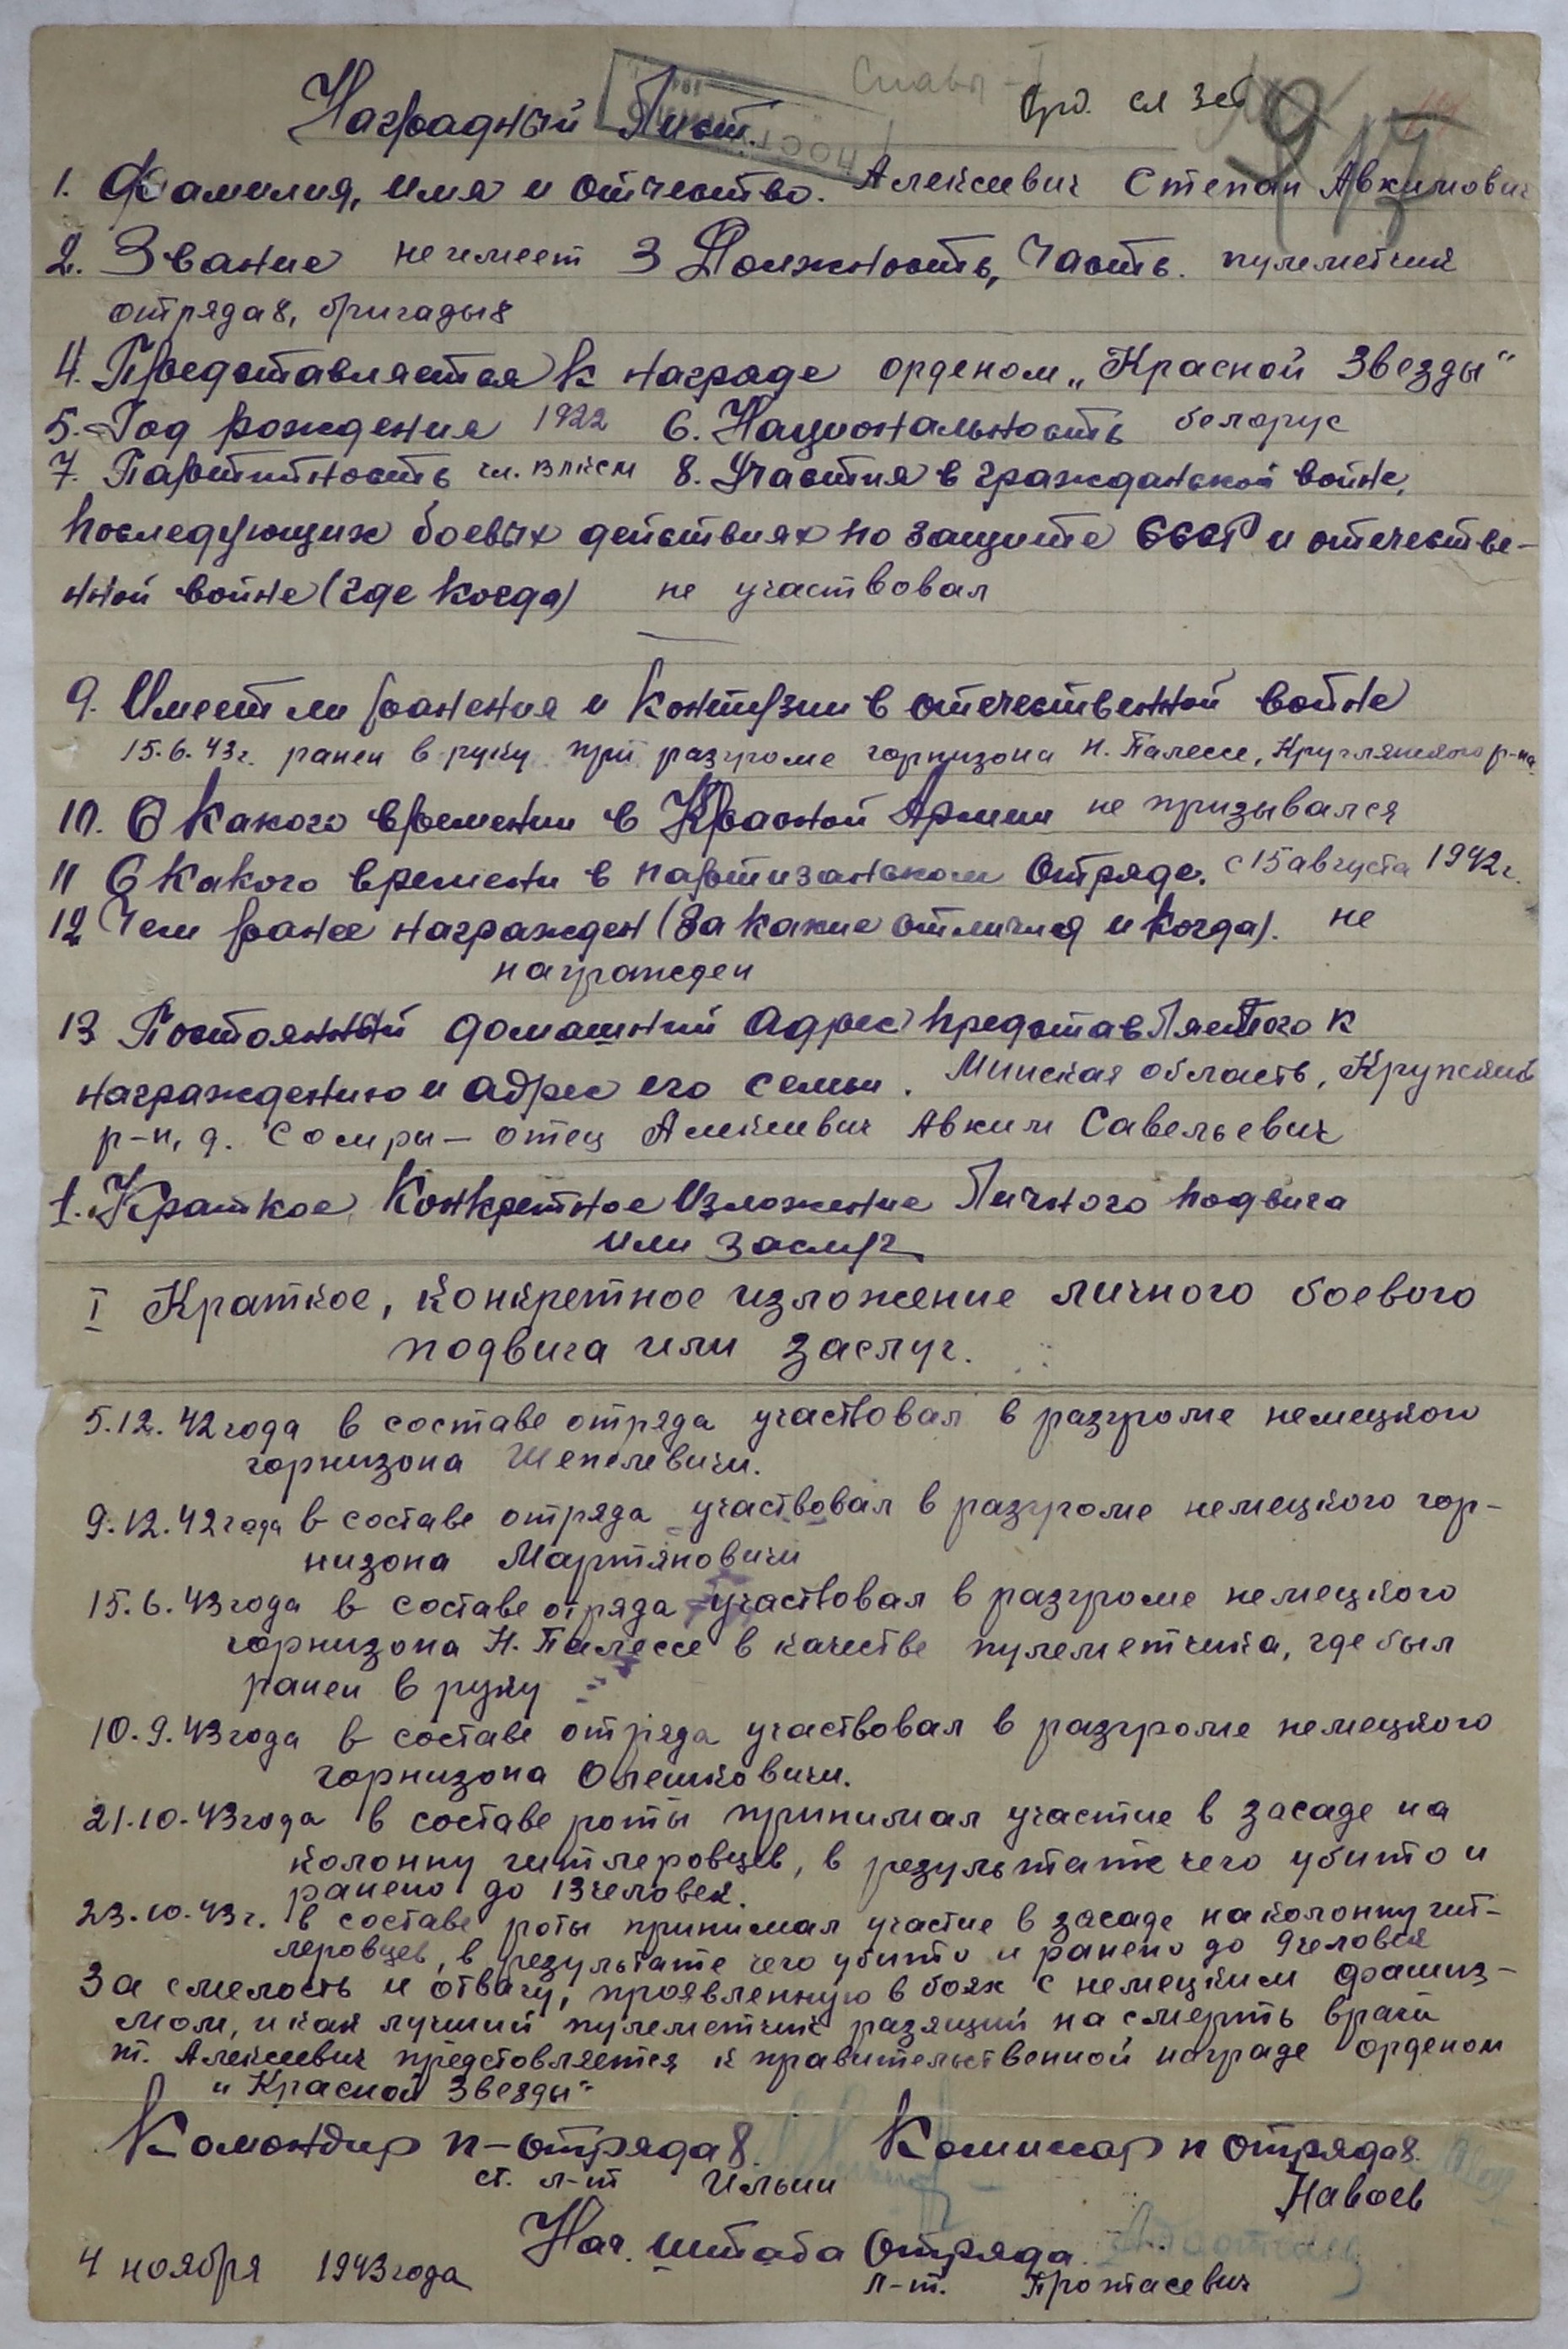 Наградный Лист.
1. Фамилия, имя и отчество. Алексиевич Степан Авкимович
2. Звание не имеет 3 Должность, Часть. пулеметчик
отряда 8, бригады 8
4. Представляется к награде орденом „Красной Звезды"
5. Год рождения 1922 6. Национальность белорус
7. Партийность чл. ВЛКСМ 8. Участия в гражданской войне,
последующих боевых действиях по защите СССР и отечестве-
нной войне (где когда) не участвовал
9. Имеет ли ранения и контузии в отечественной войне
15.6.43г. ранен в руку при разгроме горнизона Н. Палессе, Круглянского р-на
10. С какого времении в Красной Армии не призывался
11 С какого времени в партизанском отряде. с 15 августа 1942г.
12 Чем ранее награжден (за какие отличия и когда). не
награжден
13 Постоянный домашний адрес представляемого к
награждению и адрес его семьи. Минская область, Крупский
р-н, д. Сомры – отец Алексиевич Авким Савельевич
1. Краткое Конкретное Изложение Личного подвига
или заслуг
I Краткое, конкретное изложение личного боевого
подвига или заслуг.
5.12.42 года в составе отряда участвовал в разгроме немецкого
горнизона Шепелевичи.
9.12.42 года в составе отряда участвовал в разгроме немецкого гор-
низона Мартяновичи
15.6.43 года в составе отряда участвовал в разгроме немецкого
горнизона Н. Палессе в качестве пулеметчика, где был
ранен в руку
10.9.43 года в составе отряда участвовал в разгроме немецкого
горнизона Олешковичи.
21.10.43 года в составе роты принимал участие в засаде на
колонну гитлеровцев, в результате чего убито и
ранено до 13 человек.
23.10.43г. в составе роты принимал участие в засаде на колонну гит-
леровцев, в результате чего убито и ранено до 9 человек
За смелость и отвагу, проявленную в боях с немецким фашиз-
мом, и как лучший пулеметчик разящий на смерть врага
т. Алексиевич предстовляется к правительственной награде орденом
„Красной Звезды"
Комондир п-отряда 8. Комиссар п отряда 8.
ст. л-т Ильин Наваев
Нач. штаба отряда.
4 ноября 1943 года л-т. Протасевич